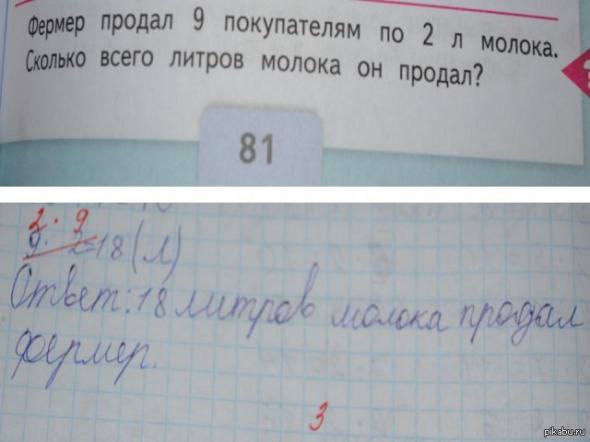 Фермер продал 9 покупателям по 2 л молока.
Сколько всего литров молока он продал?
81
2 · 9
9 · 2=18 (л)
Ответ: 18 литров молока продал
фермер.
3
pikabu.ru